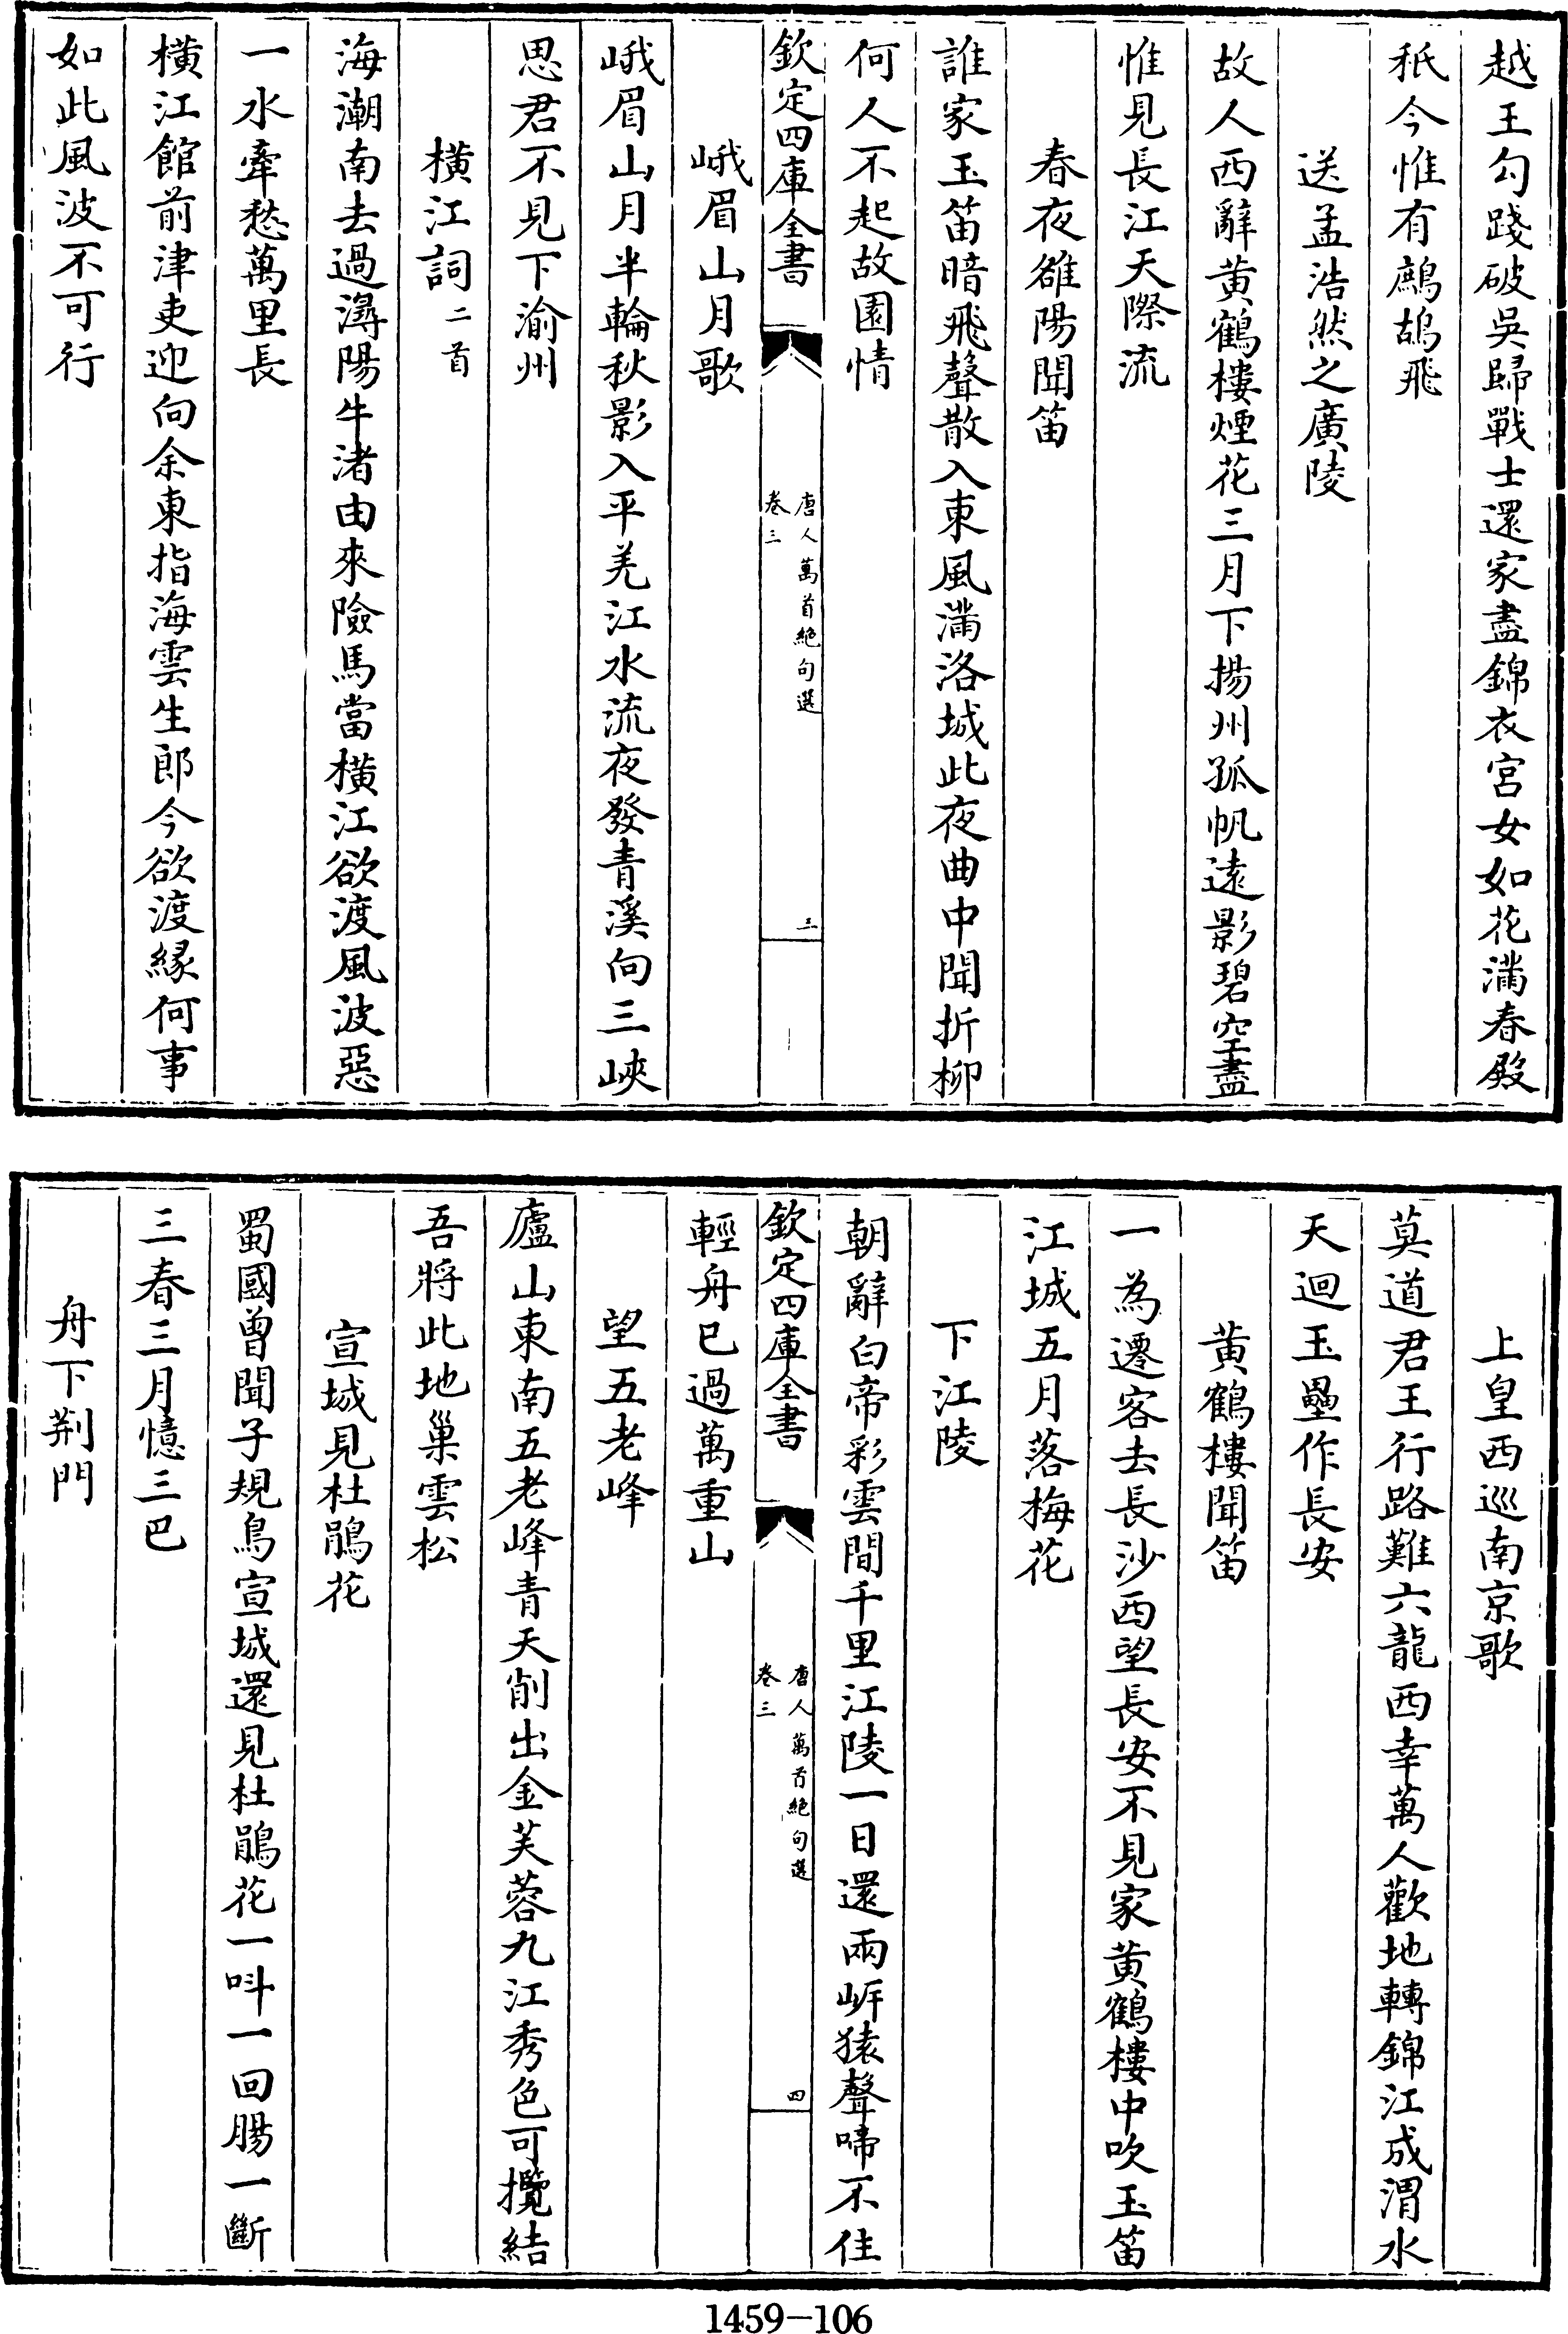 越王勾踐破吳歸戰士還家盡錦衣宮女如花滿春殿
秖今惟有鷓鴣飛
送孟浩然之廣陵
故人西辭黃鶴樓煙花三月下揚州孤帆遠影碧空盡
惟見長江天際流
春夜雒陽聞笛
誰家玉笛暗飛聲散入東風滿洛城此夜曲中聞折柳
何人不起故園情
欽定四庫全書
唐人萬首絕句選
卷三
三
峨眉山月歌
峨眉山月半輪秋影入平羌江水流夜發青溪向三峽
思君不見下渝州
橫江詞二首
海潮南去過潯陽牛渚由來險馬當橫江欲渡風波惡
一水牽愁萬里長
橫江館前津吏迎向余東指海雲生郎今欲渡緣何事
如此風波不可行
上皇西巡南京歌
莫道君王行路難六龍西幸萬人歡地轉錦江成渭水
天迴玉壘作長安
黃鶴樓聞笛
一為遷客去長沙西望長安不見家黃鶴樓中吹玉笛
江城五月落梅花
下江陵
朝辭白帝彩雲間千里江陵一日還兩岍猿聲啼不住
欽定四庫全書
唐人萬首絕句選
卷三
四
輕舟已過萬重山
望五老峰
廬山東南五老峰青天削出金芙蓉九江秀色可攬結
吾將此地巢雲松
宣城見杜鵑花
蜀國曾聞子規鳥宣城還見杜鵑花一呌一回腸一斷
三春三月憶三巴
舟下荆門
1459-106